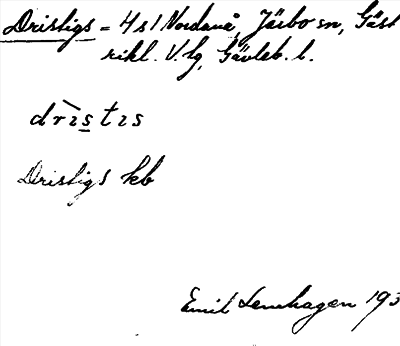 Dristigs = 4 s 1 Nordanå, Järbo sn, Gäst
rikl. V. lg, Gävleb. l.
drıstıs
Dristigs kb
Emil Lenhagen 193